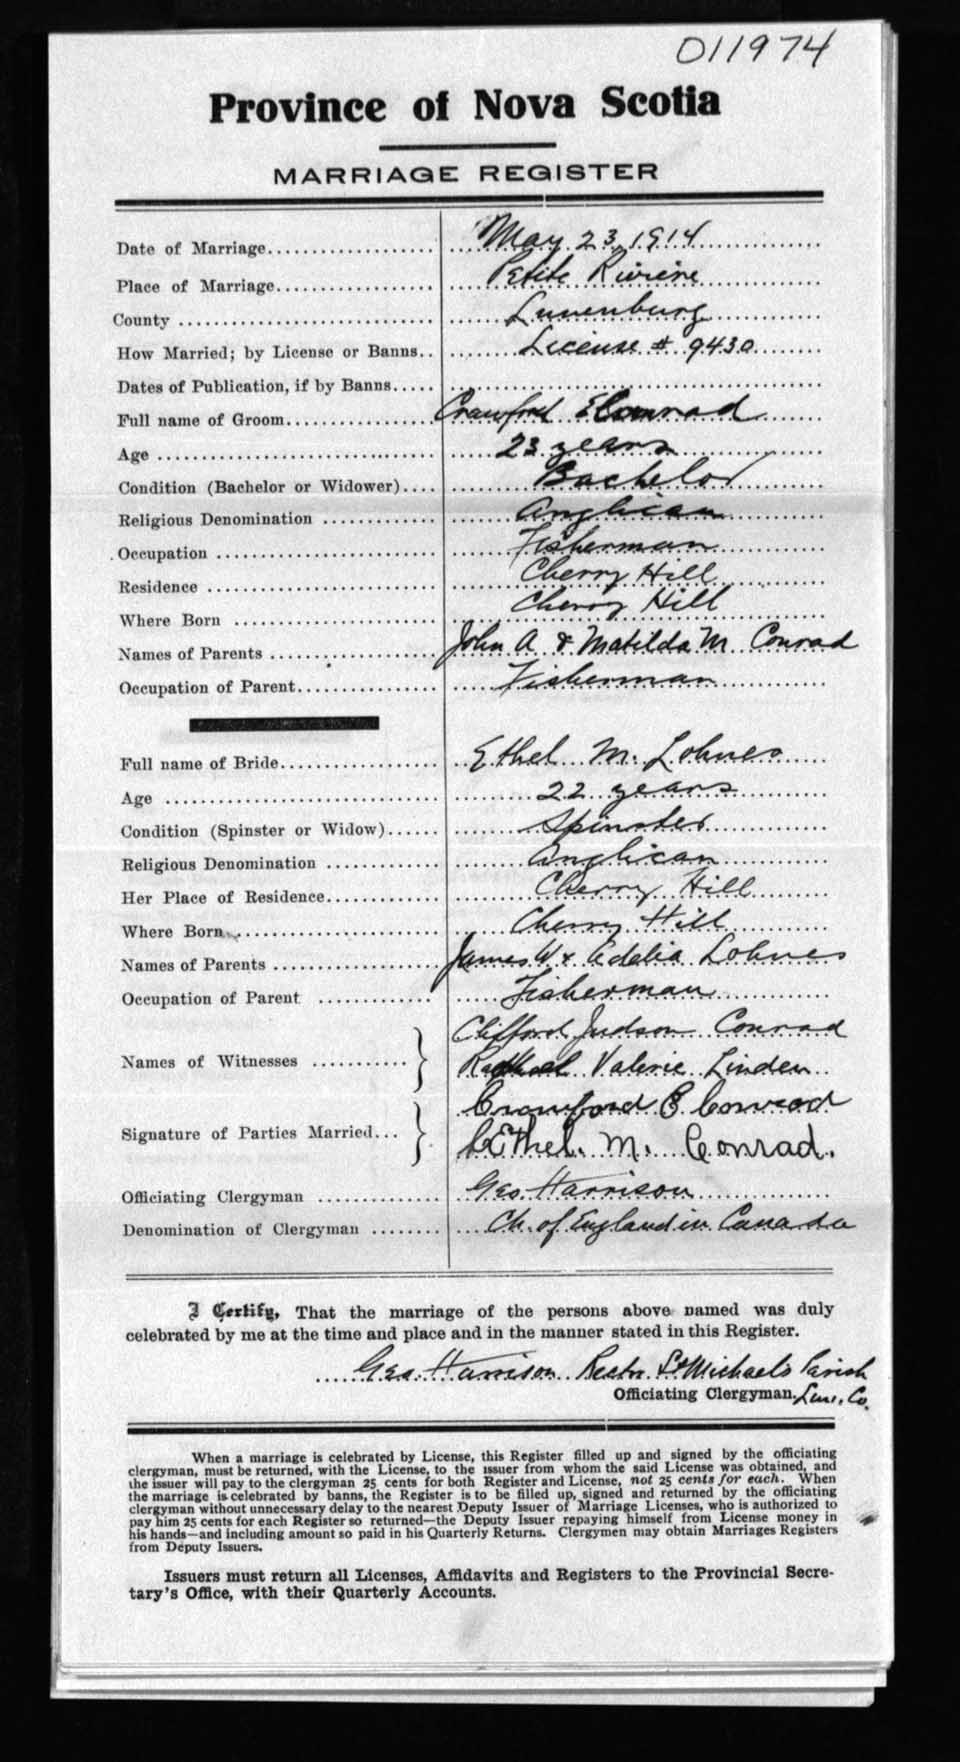 011974
Province of Nova Scotia
MARRIAGE REGISTER
Date of Marriage.................. May 23, 1914
Place of Marriage.................. Petite Riviere
County .................. Lunenburg
How Married; by License or Banns.. License # 9430
Dates of Publication, if by Banns.....
Full name of Groom.................. Crawford E Conrad
Age .................. 23 years
Condition (Bachelor or Widower).... Bachelor
Religious Denomination ............ Anglican
Occupation .................. Fisherman
Residence .................. Cherry Hill
Where Born .................. Cherry Hill
Names of Parents .................. John A & Matilda M Conrad
Occupation of Parent.................. Fisherman
Full name of Bride.................. Ethel M. Lohnes
Age .................. 22 years
Condition (Spinster or Widow)...... Spinster
Religious Denomination ............ Anglican
Her Place of Residence............ Cherry Hill
Where Born.................. Cherry Hill
Names of Parents .................. James W & Adelia Lohnes
Occupation of Parent ............ Fisherman
Clifford Judson Conrad
Names of Witnesses ............ } Valerie Linden
Crawford E Conrad
Signature of Parties Married... } Ethel. M. Conrad.
Officiating Clergyman ............ Geo. Harrison
Denomination of Clergyman ........ Ch. of England in Canada
I Certify, That the marriage of the persons above named was duly
celebrated by me at the time and place and in the manner stated in this Register.
Geo. Harrison Rector St Michael's Parish
Officiating Clergyman. Lun. Co.
When a marriage is celebrated by License, this Register filled up and signed by the officiating
clergyman, must be returned, with the License, to the issuer from whom the said License was obtained, and
the issuer will pay to the clergyman 25 cents for both Register and License, not 25 cents for each. When
the marriage is celebrated by banns, the Register is to be filled up, signed and returned by the officiating
clergyman without unnecessary delay to the nearest Deputy Issuer of Marriage Licenses, who is authorized to
pay him 25 cents for each Register so returned—the Deputy Issuer repaying himself from License money in
his hands—and including amount so paid in his Quarterly Returns. Clergymen may obtain Marriages Registers
from Deputy Issuers.
Issuers must return all Licenses, Affidavits and Registers to the Provincial Secre-
tary's Office, with their Quarterly Accounts.